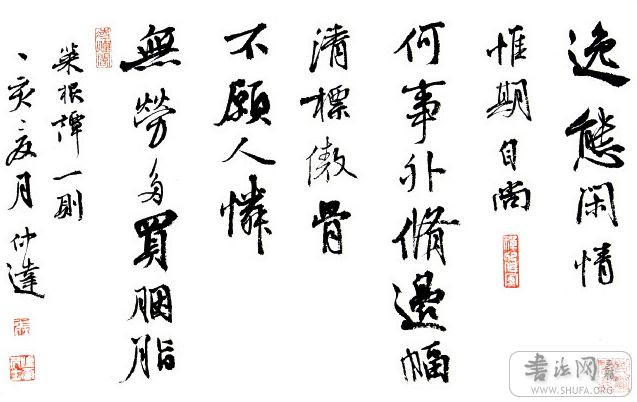 逸態閑情
惟期自尚
何事外脩邊幅
清標傲骨
不願人憐
無勞多買胭脂
菜根譚一則
丁亥夏月仲達
張
书法网
WWW.SHUFA.ORG